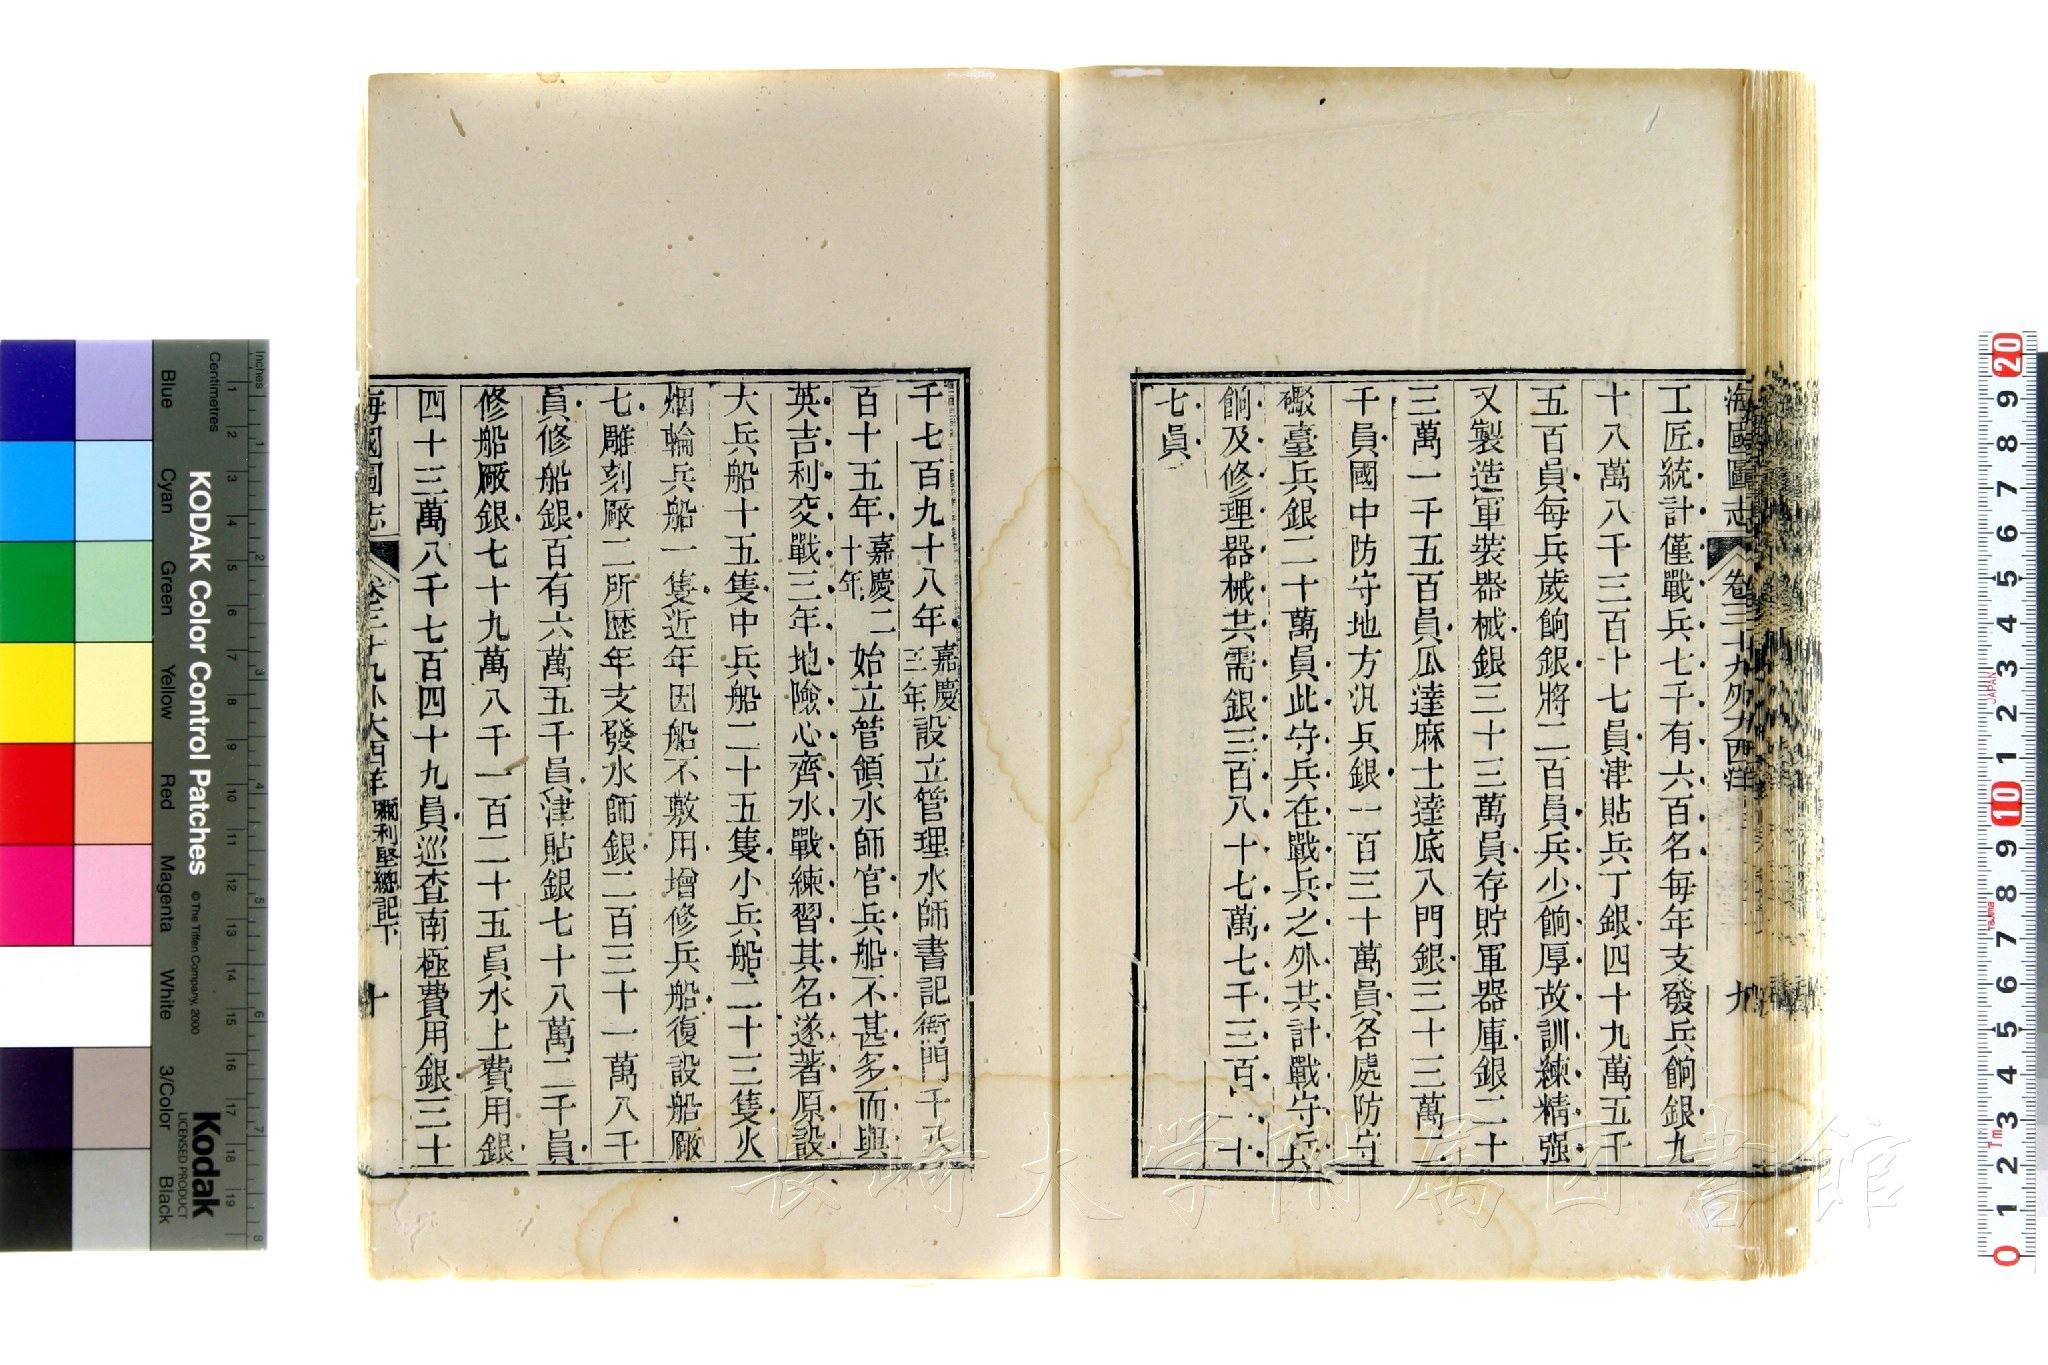 海國圖志 卷三十九外大西洋 九
工匠統計僅戰兵七千有六百名每年支發兵餉銀九
十八萬八千三百十七員津貼兵丁銀四十九萬五千
五百員每兵歲餉銀將二百員兵少餉厚故訓練精强
又製造軍裝器械銀三十三萬員存貯軍器庫銀二十
三萬一千五百員瓜達麻士達底八門銀三十三萬二
千員國中防守地方汛兵銀一百三十萬員各處防守
礮臺兵銀二十萬員此守兵在戰兵之外其計戰守兵
餉及修理器械共需銀三百八十七萬七千三百二十
七員
千七百九十八年嘉慶三年設立管理水師書記衙門千八
百十五年嘉慶二十年始立管領水師官兵船不甚多而與
英吉利交戰三年地險心齊水戰練習其名遂著原設
大兵船十五隻中兵船二十五隻小兵船二十三隻火
烟輪兵船一隻近年因船不敷用增修兵船復設船廠
七雕刻廠二所歷年支發水師銀二百三十一萬八千
員修船銀百有六萬五千員津貼銀七十八萬二千員
修船廠銀七十九萬八千一百二十五員水上費用銀
四十三萬八千七百四十九員巡查南極費用銀三十
海國圖志 卷三十九外大西洋 彌利堅總記下 十
KODAK Color Control Patches © The Tiffen Company, 2000
Kodak
LICENSED PRODUCT
Centimetres
Inches
Blue Cyan Green Yellow Red Magenta White 3/Color Black
1 2 3 4 5 6 7 8 9 10 11 12 13 14 15 16 17 18 19
20 9 8 7 6 5 4 3 2 1 10 9 8 7 6 5 4 3 2 1 0
JAPAN
長崎大学附属図書館